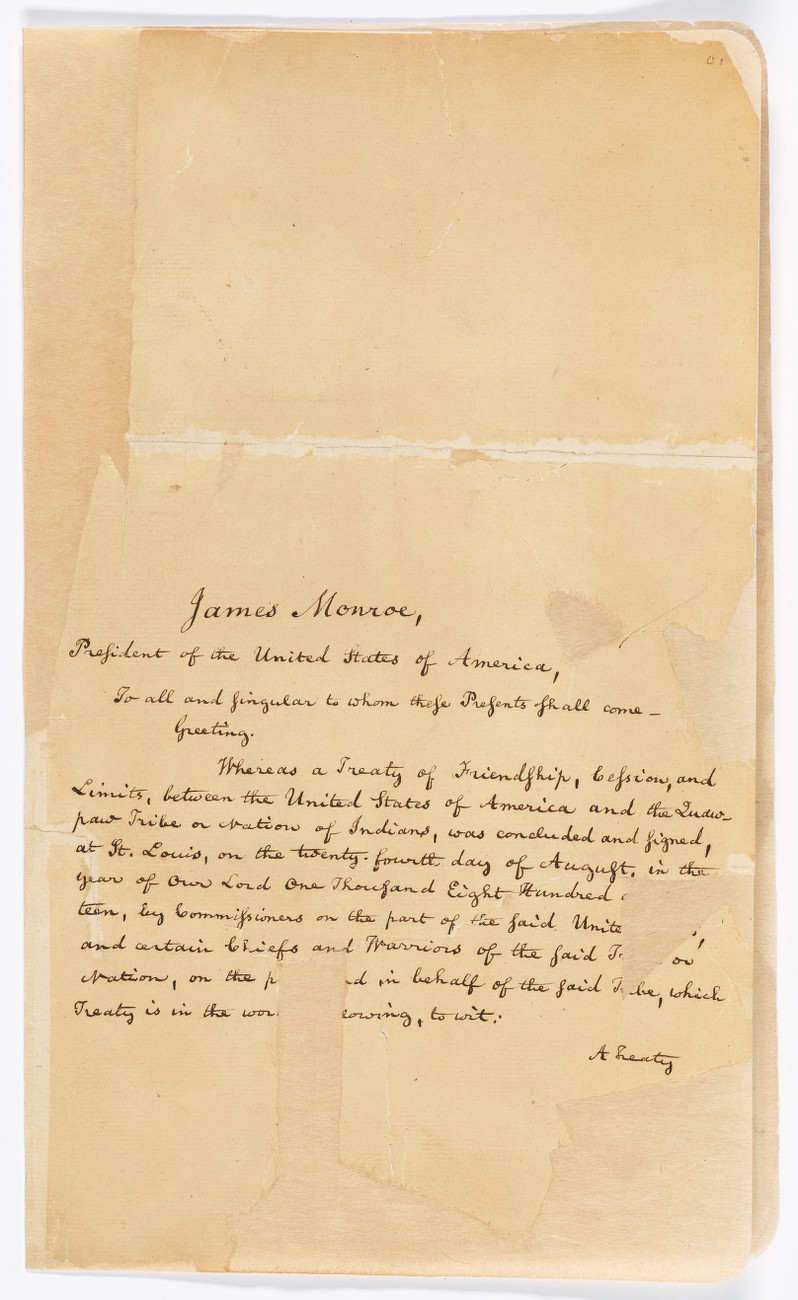 01
James Monroe,
President of the United States of America,
To all and singular to whom these Presents shall come –
Greeting.
Whereas a Treaty of Friendship, Cession, and
Limits, between the United States of America and the Quaw-
paw Tribe or Nation of Indians, was concluded and signed,
at St. Louis, on the twenty-fourth day of August, in the
year of Our Lord One Thousand Eight Hundred
teen, by Commissioners on the part of the said Unite
and certain Chiefs and Warriors of the said T or
Nation, on the p d in behalf of the said T be, which
Treaty is in the wor owing, to wit:
A Treaty